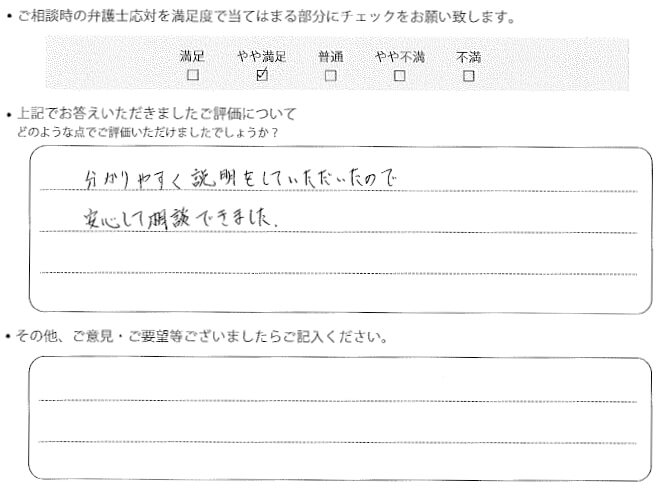 • ご相談時の弁護士応対を満足度で当てはまる部分にチェックをお願い致します。
満足 やや満足 普通 やや不満 不満
□ ☑ □ □ □
• 上記でお答えいただきましたご評価について
どのような点でご評価いただけましたでしょうか？
分かりやすく説明をしていただいたので
安心して相談できました.
• その他、ご意見・ご要望等ございましたらご記入ください。